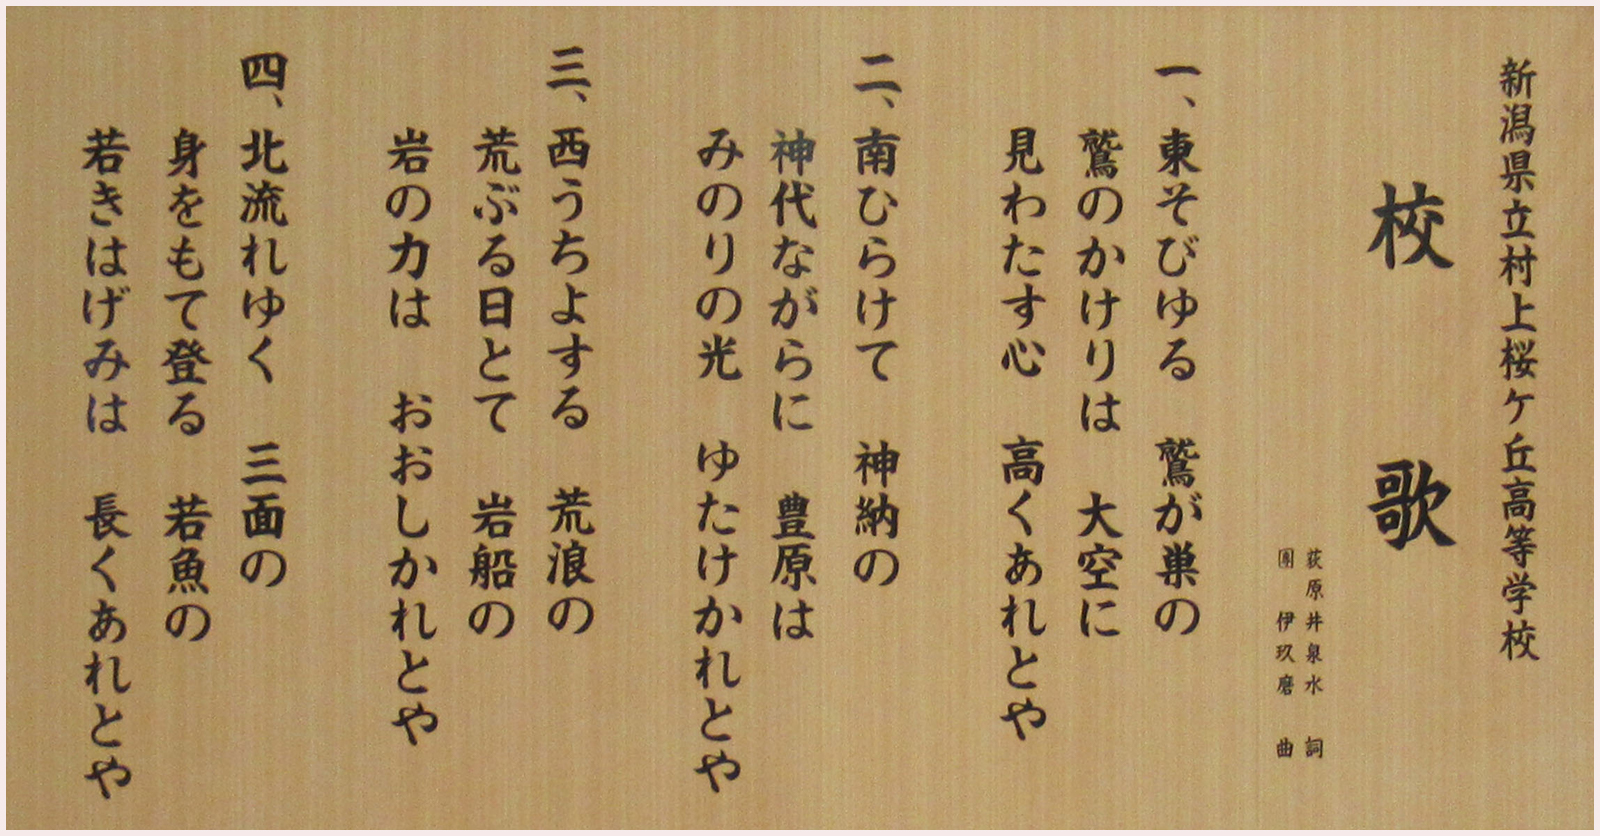 新潟県立村上桜ケ丘高等学校
校 歌
荻原井泉水 詞
團 伊玖磨 曲
一、東そびゆる 鷲が巣の
鷲のかけりは 大空に
見わたす心 高くあれとや
二、南ひらけて 神納の
神代ながらに 豊原は
みのりの光 ゆたけかれとや
三、西うちよする 荒浪の
荒ぶる日とて 岩船の
岩の力は おおしかれとや
四、北流れゆく 三面の
身をもて登る 若魚の
若きはげみは 長くあれとや